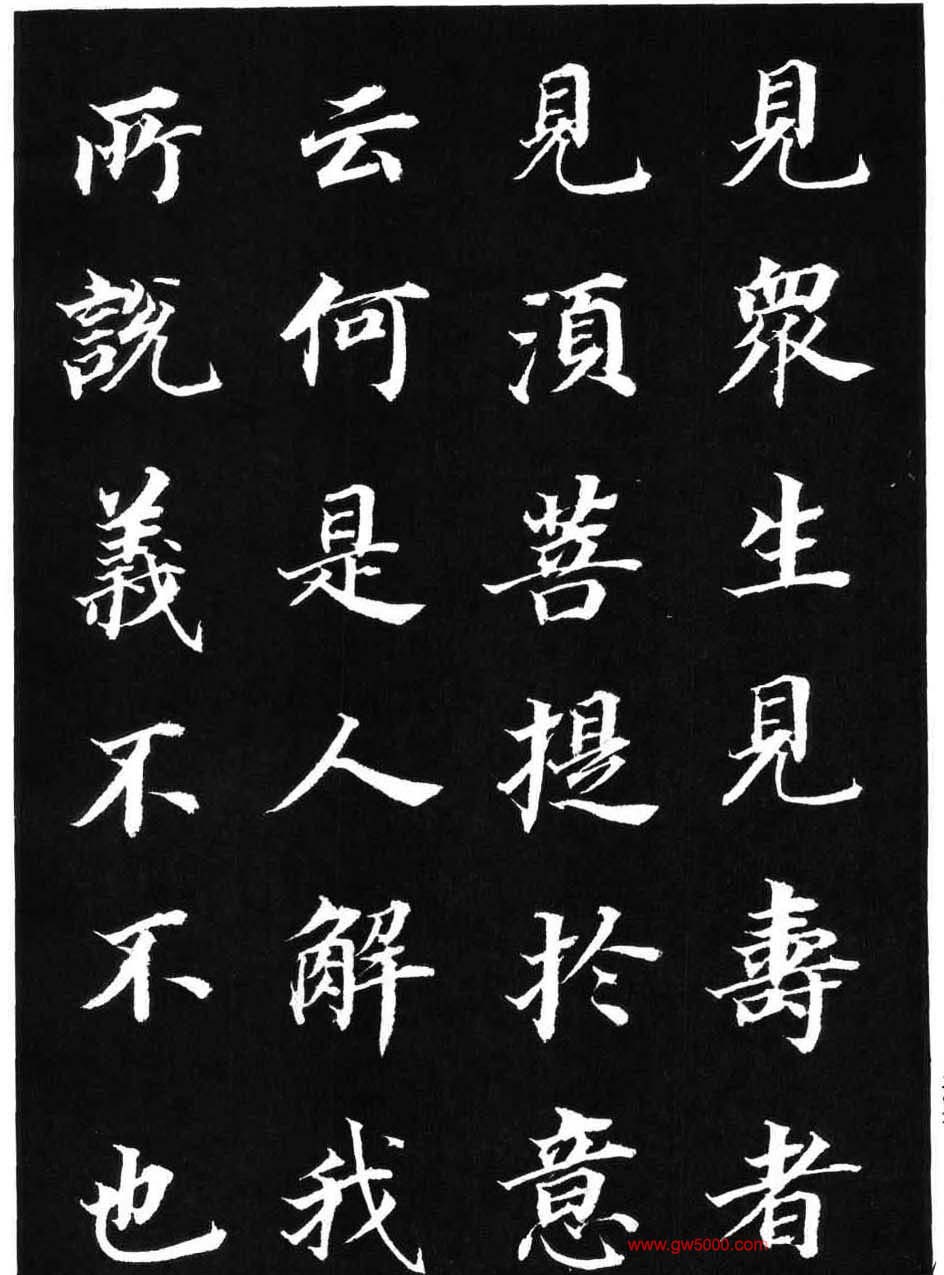 見眾生見壽者
見須菩提於意
云何是人解我
所說義不不也
www.gw5000.com